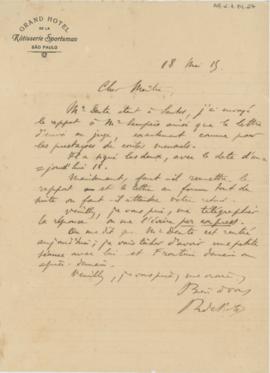 GRAND HOTEL
DE LA
Rôtisserie Sportsman
SÃO PAULO
18 Mai 15
Cher Maître,
Mr Dente étant à Santos, j'ai envoyé
le rapport à Mr Sampaio ainsi que la lettre
d'envoi au juge, exactement comme pour
les prestações de contes
reçu les deux, avec la date d'au-
jourd'hui 18.
Maintenant, faut-il remettre le
rapport et la lettre au forum tout de
suite ou faut-il attendre votre retour.
Veuillez, je vous prie, me télégraphier
la réponse ou me l'écrire par exprès.
On me dit que Mr Dente est rentré
aujourd'hui; je vais tâcher d'avoir une petite
séance avec lui et Frontini demain ou
après-demain.
Veuillez, je vous prie, me croire,
Bien à vous